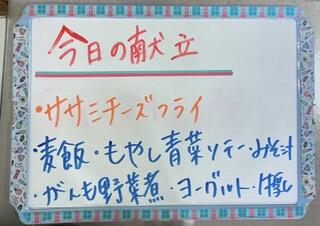 今日の献立
・ササミチーズフライ
・麦飯・もやし青菜ソテー・みそ汁
・がんも野菜煮・ヨーグルト・